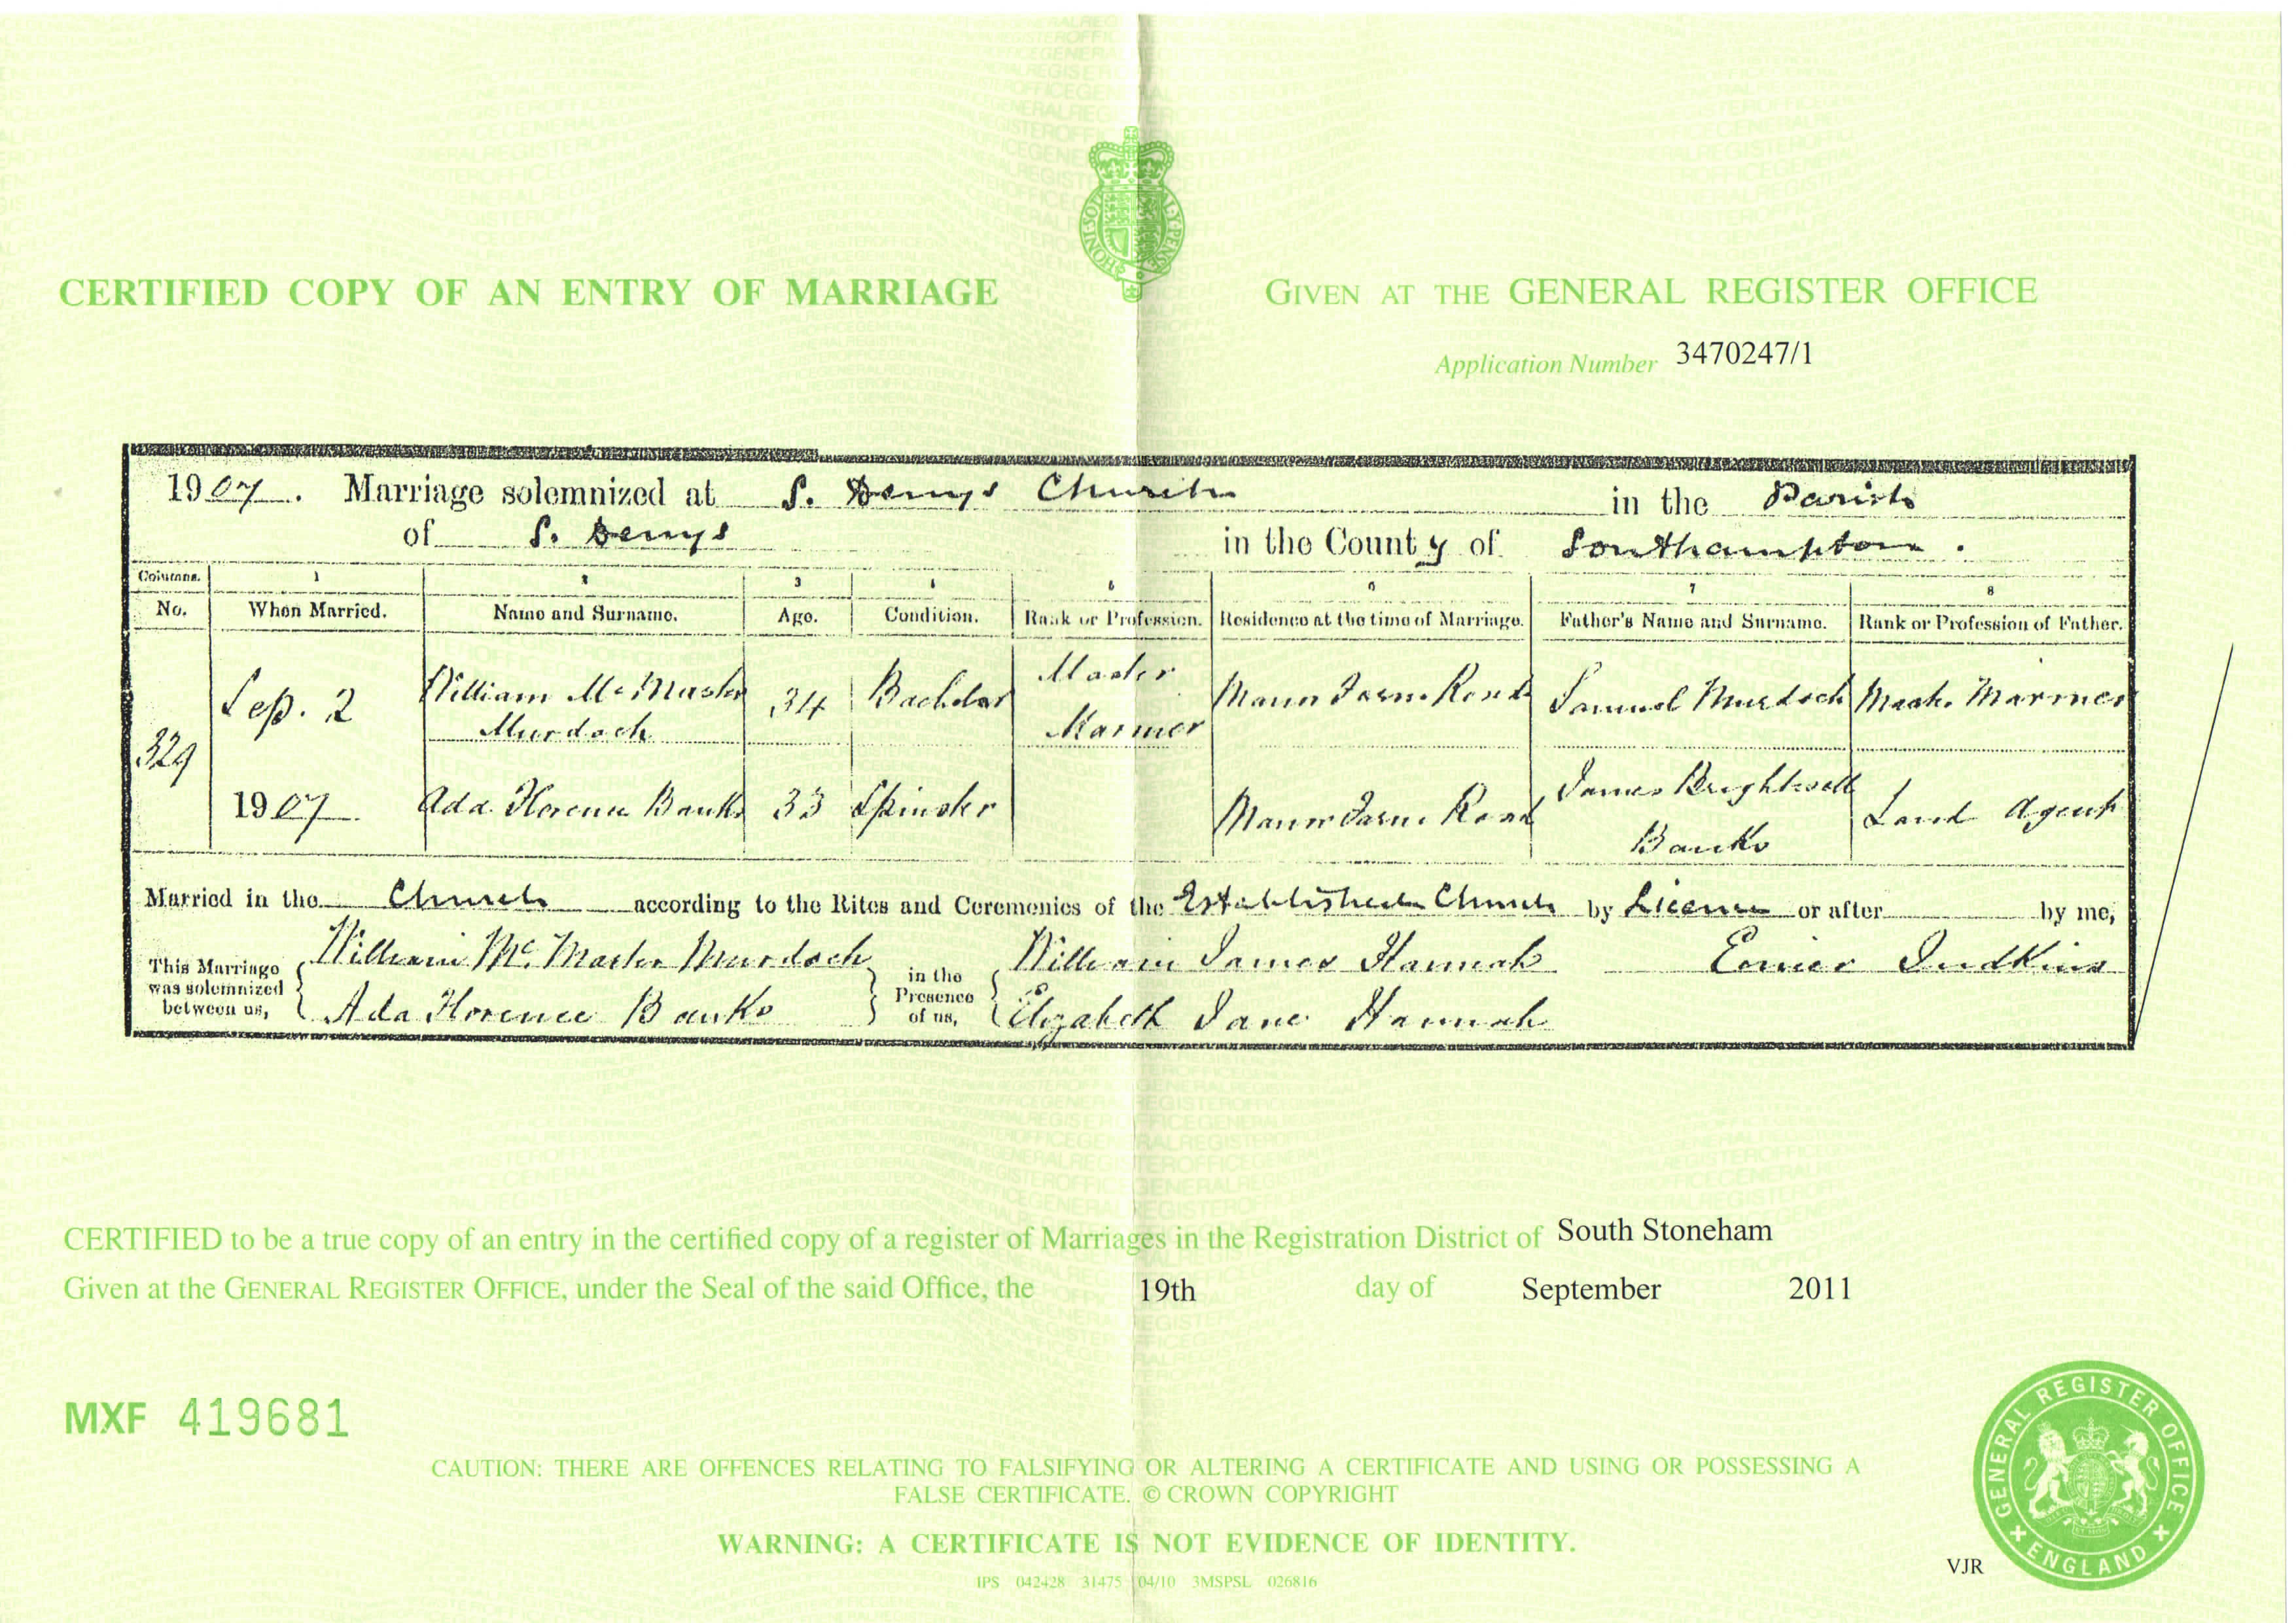 CERTIFIED COPY OF AN ENTRY OF MARRIAGE
GIVEN AT THE GENERAL REGISTER OFFICE
Application Number 3470247/1
1907. Marriage solemnized at S. Denys Church in the Parish
of S. Denys in the County of Southampton.
Columns. 1 2 3 4 5 6 7 8
No. When Married. Name and Surname. Age. Condition. Rank or Profession. Residence at the time of Marriage. Father's Name and Surname. Rank or Profession of Father.
329
Sep. 2
1907.
William McMaster
Murdoch
34
Bachelor
Master
Mariner
Manor Farm Road
Samuel Murdoch
Mast. Mariner
Ada Florence Banks
33
Spinster
Manor Farm Road
James Brightwell
Banks
Land Agent
Married in the Church according to the Rites and Ceremonies of the Established Church by Licence or after by me,
This Marriage
was solemnized
between us,
William Mc. Master Murdoch
Ada Florence Banks
in the
Presence
of us,
William James Hannah
Elizabeth Jane Hannah
Judkins
CERTIFIED to be a true copy of an entry in the certified copy of a register of Marriages in the Registration District of South Stoneham
Given at the GENERAL REGISTER OFFICE, under the Seal of the said Office, the 19th day of September 2011
MXF 419681
CAUTION: THERE ARE OFFENCES RELATING TO FALSIFYING OR ALTERING A CERTIFICATE AND USING OR POSSESSING A
FALSE CERTIFICATE. © CROWN COPYRIGHT
WARNING: A CERTIFICATE IS NOT EVIDENCE OF IDENTITY.
IPS 042428 31475 04/10 3MSPSL 026816
VJR
GENERAL REGISTER OFFICE
ENGLAND